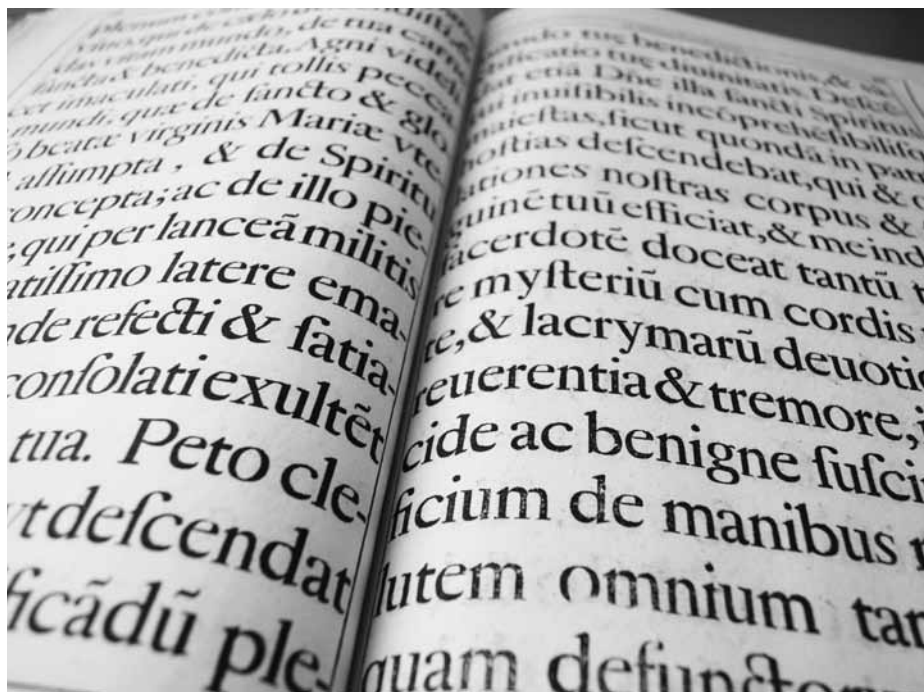 plenum
vino, qui de cælo
das vitam mundo, de tua
sancta & benedicta. Agni videl
cet imaculati, qui tollis pecca
mundi, quæ de sancto & glo
beatæ virginis Mariæ vte
aſſumpta, & de Spiritu
concepta; ac de illo pie
, qui per lanceã militis
atiſſimo latere ema-
nde refecti & ſatia-
conſolati exultẽt
tua. Peto cle-
vt deſcendat
ficãdũ ple-
tuę benedictionis &
ficatio tuę diuinitatis. Deſcẽ
at etiã Dñe illa ſancti Spiritus
ui inuiſibilis incõprehẽſibiliſq
maieſtas, ſicut quondã in patr
hoſtias deſcendebat, qui &
lationes noſtras corpus &
guinẽ tuũ efficiat, & me ind
ſacerdotẽ doceat tantũ
re myſteriũ cum cordis
te, & lacrymarũ deuotio
reuerentia & tremore,
cide ac benigne ſuſci
ficium de manibus
lutem omnium tam
quam defuncto